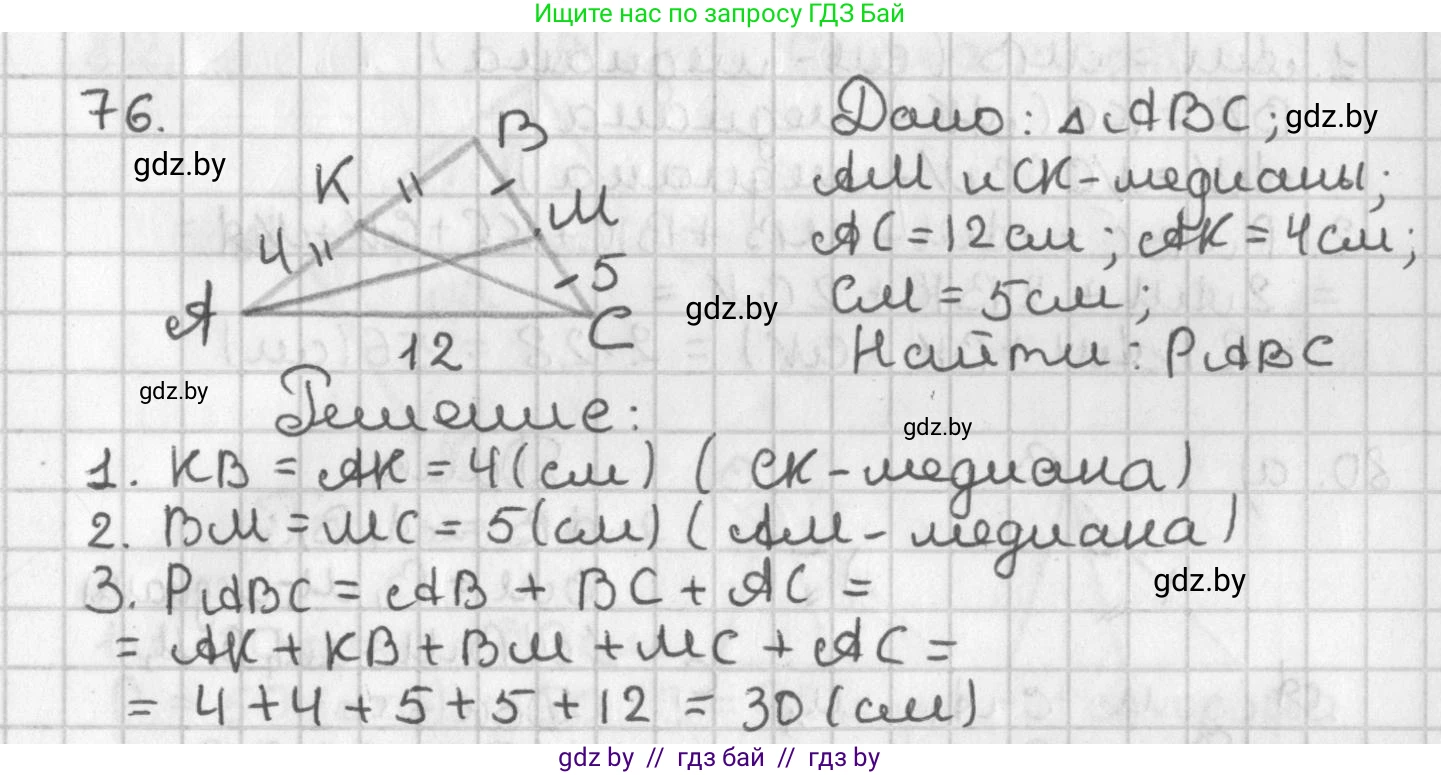 Ищите нас по запросу ГДЗ Бай
76.
gdz.by
B
K
M
4
5
A
C
12
Дано: △ABC; gdz.by
AM и CK - медианы;
AC = 12 см; AK = 4 см;
gdz.by
CM = 5 см;
Найти: PABC
gdz.by
Решение:
gdz.by
1. KB = AK = 4 (см) (CK - медиана)
2. BM = MC = 5 (см) (AM - медиана)
gdz.by
3. PABC = AB + BC + AC =
= AK + KB + BM + MC + AC =
= 4 + 4 + 5 + 5 + 12 = 30 (см)
gdz.by // гдз бай // гдз by